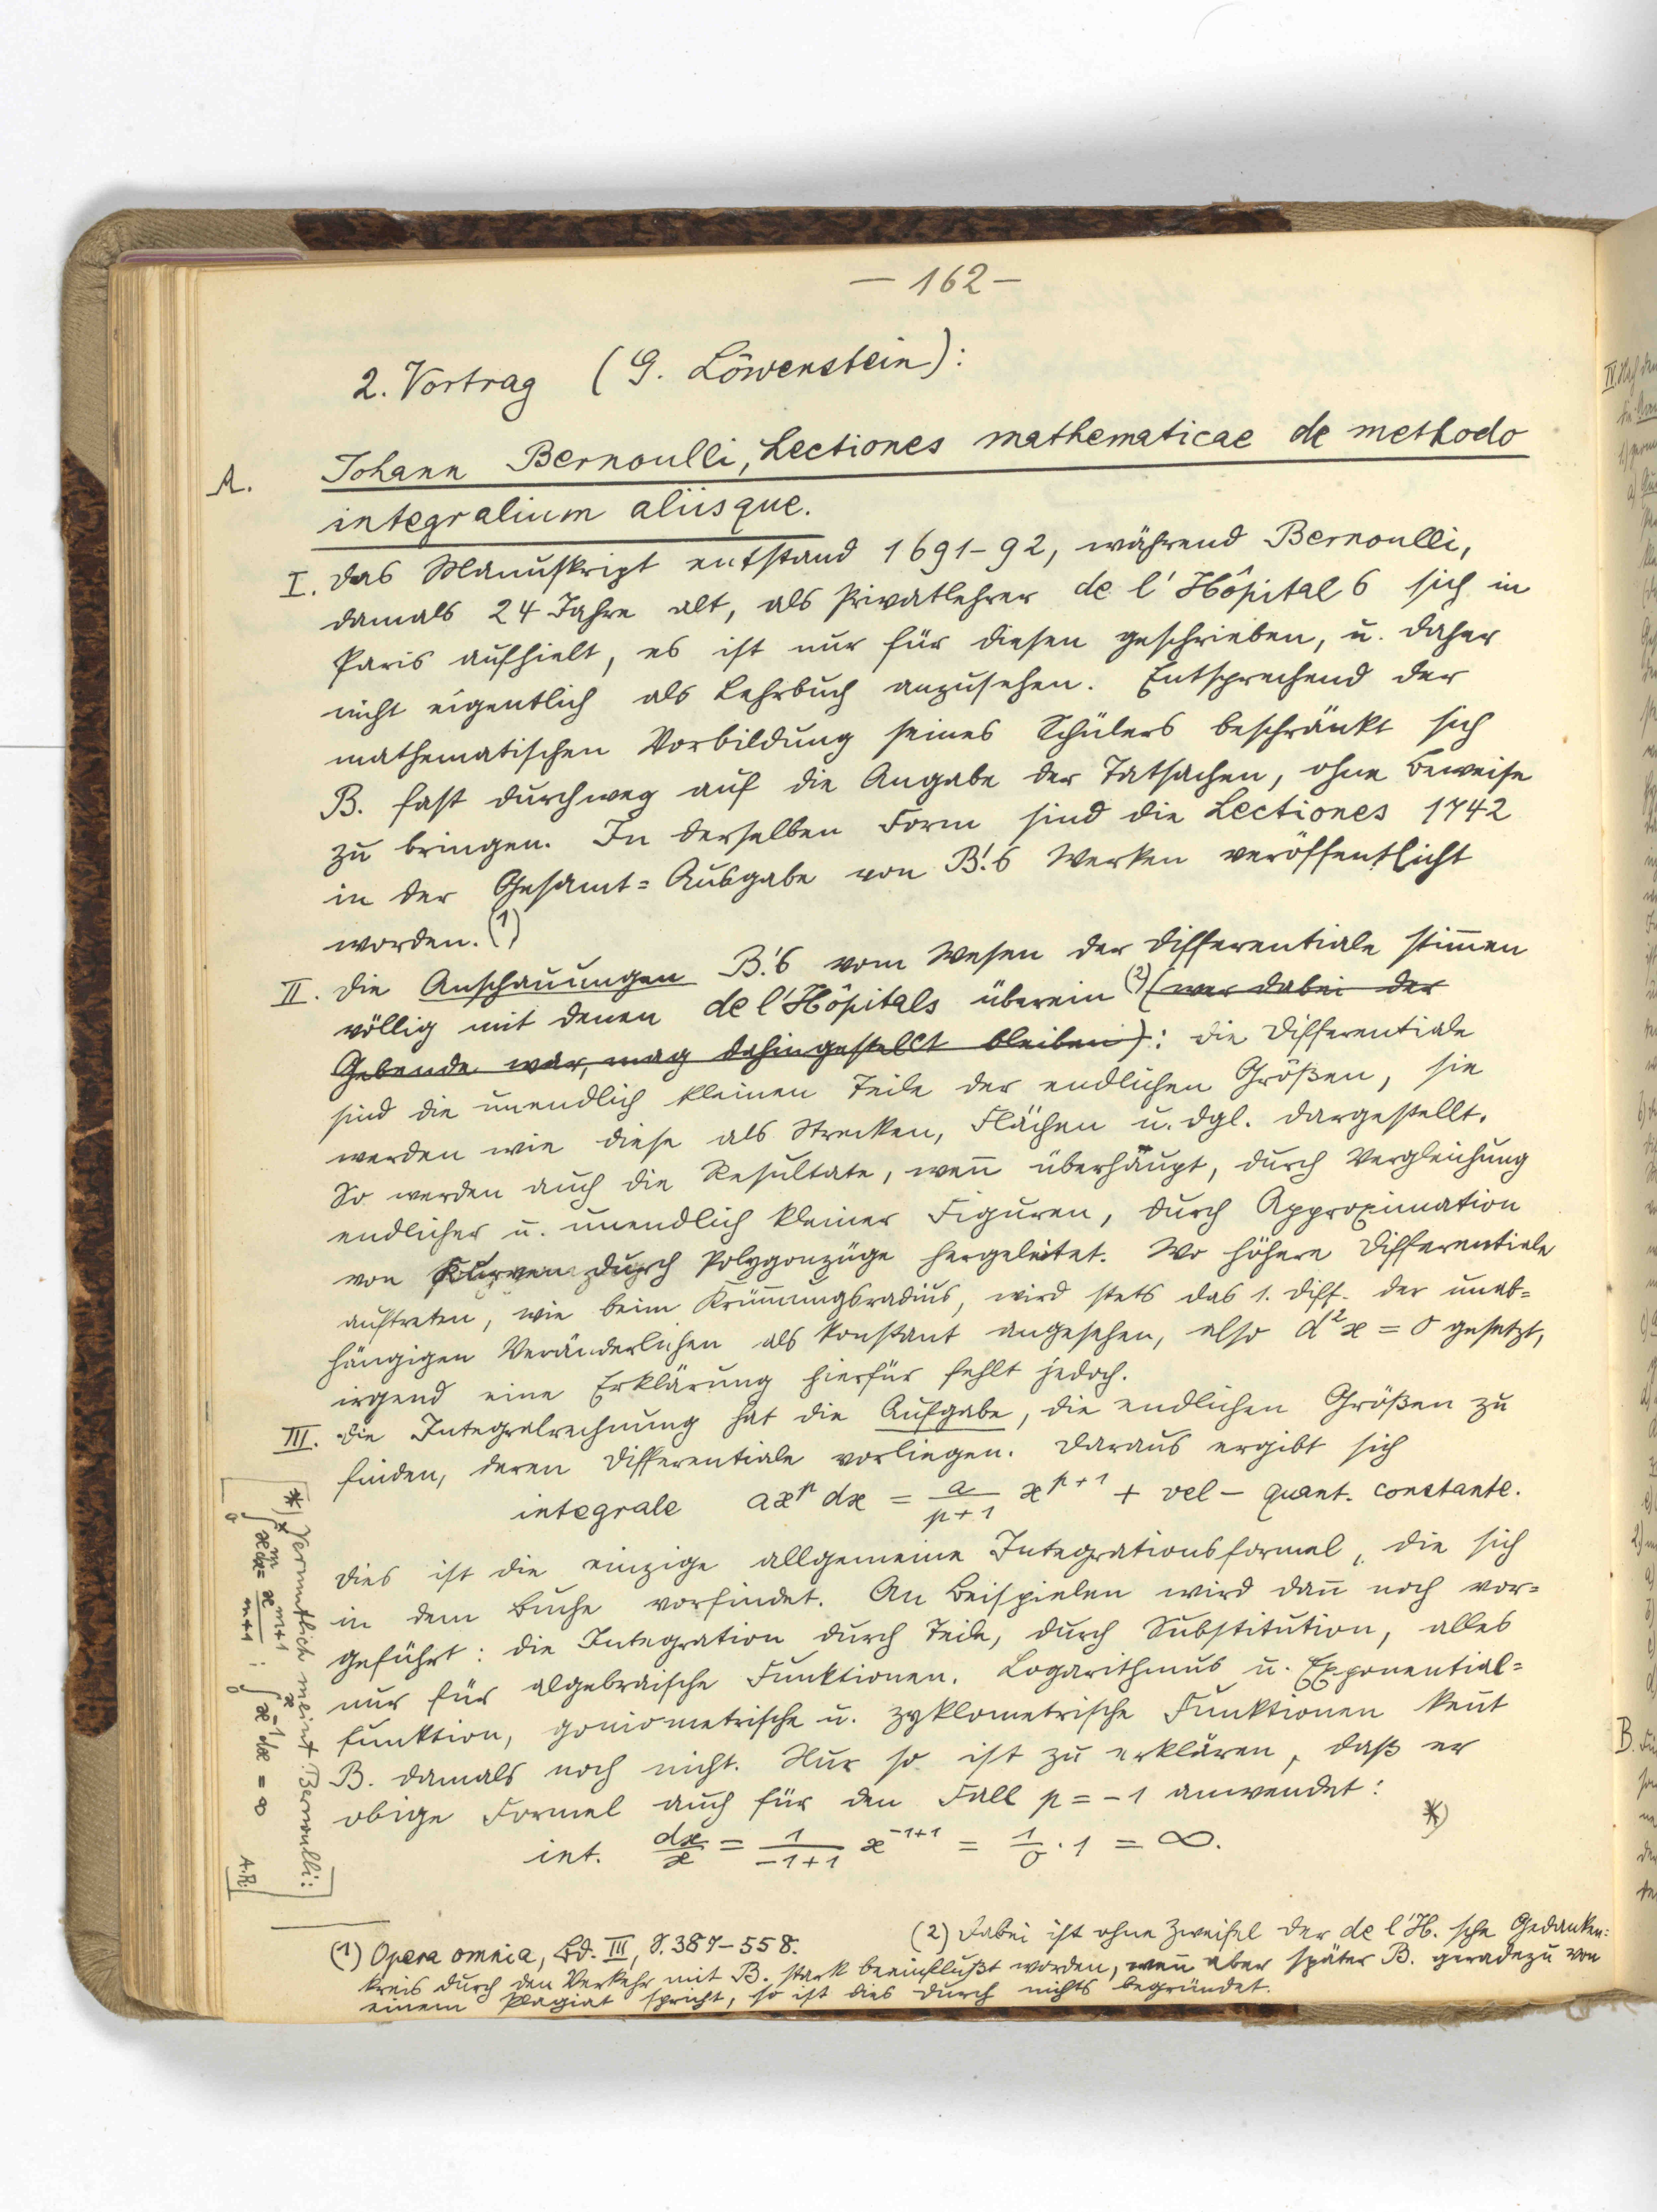 — 162 —
2. Vortrag (G. Löwenstein):
A. Johann Bernoulli, Lectiones mathematicae de methodo
integralium aliisque.
I. Das Manuskript entstand 1691-92, während Bernoulli,
damals 24 Jahre alt, als Privatlehrer de l'Hôpitals sich in
Paris aufhielt, es ist nur für diesen geschrieben, u. daher
nicht eigentlich als Lehrbuch anzusehen. Entsprechend der
mathematischen Vorbildung seines Schülers beschränkt sich
B. fast durchweg auf die Angabe der Tatsachen, ohne Beweise
zu bringen. In derselben Form sind die Lectiones 1742
in der Gesamt=Ausgabe von B.'s Werken veröffentlicht
worden. (1)
II. Die Anschauungen B.'s vom Wesen der Differentiale stim̄en
völlig mit denen de l'Hôpitals überein (2) (wer dabei der
Gebende war, mag dahingestellt bleiben): die Differentiale
sind die unendlich kleinen Teile der endlichen Größen, sie
werden wie diese als Strecken, Flächen u. dgl. dargestellt.
So werden auch die Resultate, wen̄ überhaupt, durch Vergleichung
endlicher u. unendlich kleiner Figuren, durch Approximation
von Kurven durch Polygonzüge hergeleitet. Wo höhere Differentiale
auftreten, wie beim Krüm̄ungsradius, wird stets das 1. Diff. der unab=
hängigen Veränderlichen als konstant angesehen, also d²x = 0 gesetzt,
irgend eine Erklärung hierfür fehlt jedoch.
III. Die Integralrechnung hat die Aufgabe, die endlichen Größen zu
finden, deren Differentiale vorliegen. Daraus ergibt sich
integrale ax^p dx = a/(p+1) x^(p+1) + vel - quant. constante.
Dies ist die einzige allgemeine Integrationsformel, die sich
in dem Buche vorfindet. An Beispielen wird dan̄ noch vor=
geführt: die Integration durch Teile, durch Substitution, alles
nur für algebraische Funktionen. Logarithmus u. Exponential=
funktion, goniometrische u. zyklometrische Funktionen ken̄t
B. damals noch nicht. Nur so ist zu erklären, daß er
obige Formel auch für den Fall p = -1 anwendet:
int. dx/x = 1/(-1+1) x^(-1+1) = 1/0 · 1 = ∞. *)
[*) Vermutlich meint Bernoulli:
∫₀^x x^m dx = x^(m+1)/(m+1); ∫₀^x x^(-1) dx = ∞ A.R.]
(1) Opera omnia, Bd. III, S. 387-558.
(2) Dabei ist ohne Zweifel der de l'H.sche Gedanken=
kreis durch den Verkehr mit B. stark beeinflußt worden, wen̄ aber später B. geradezu von
einem Plagiat spricht, so ist dies durch nichts begründet.